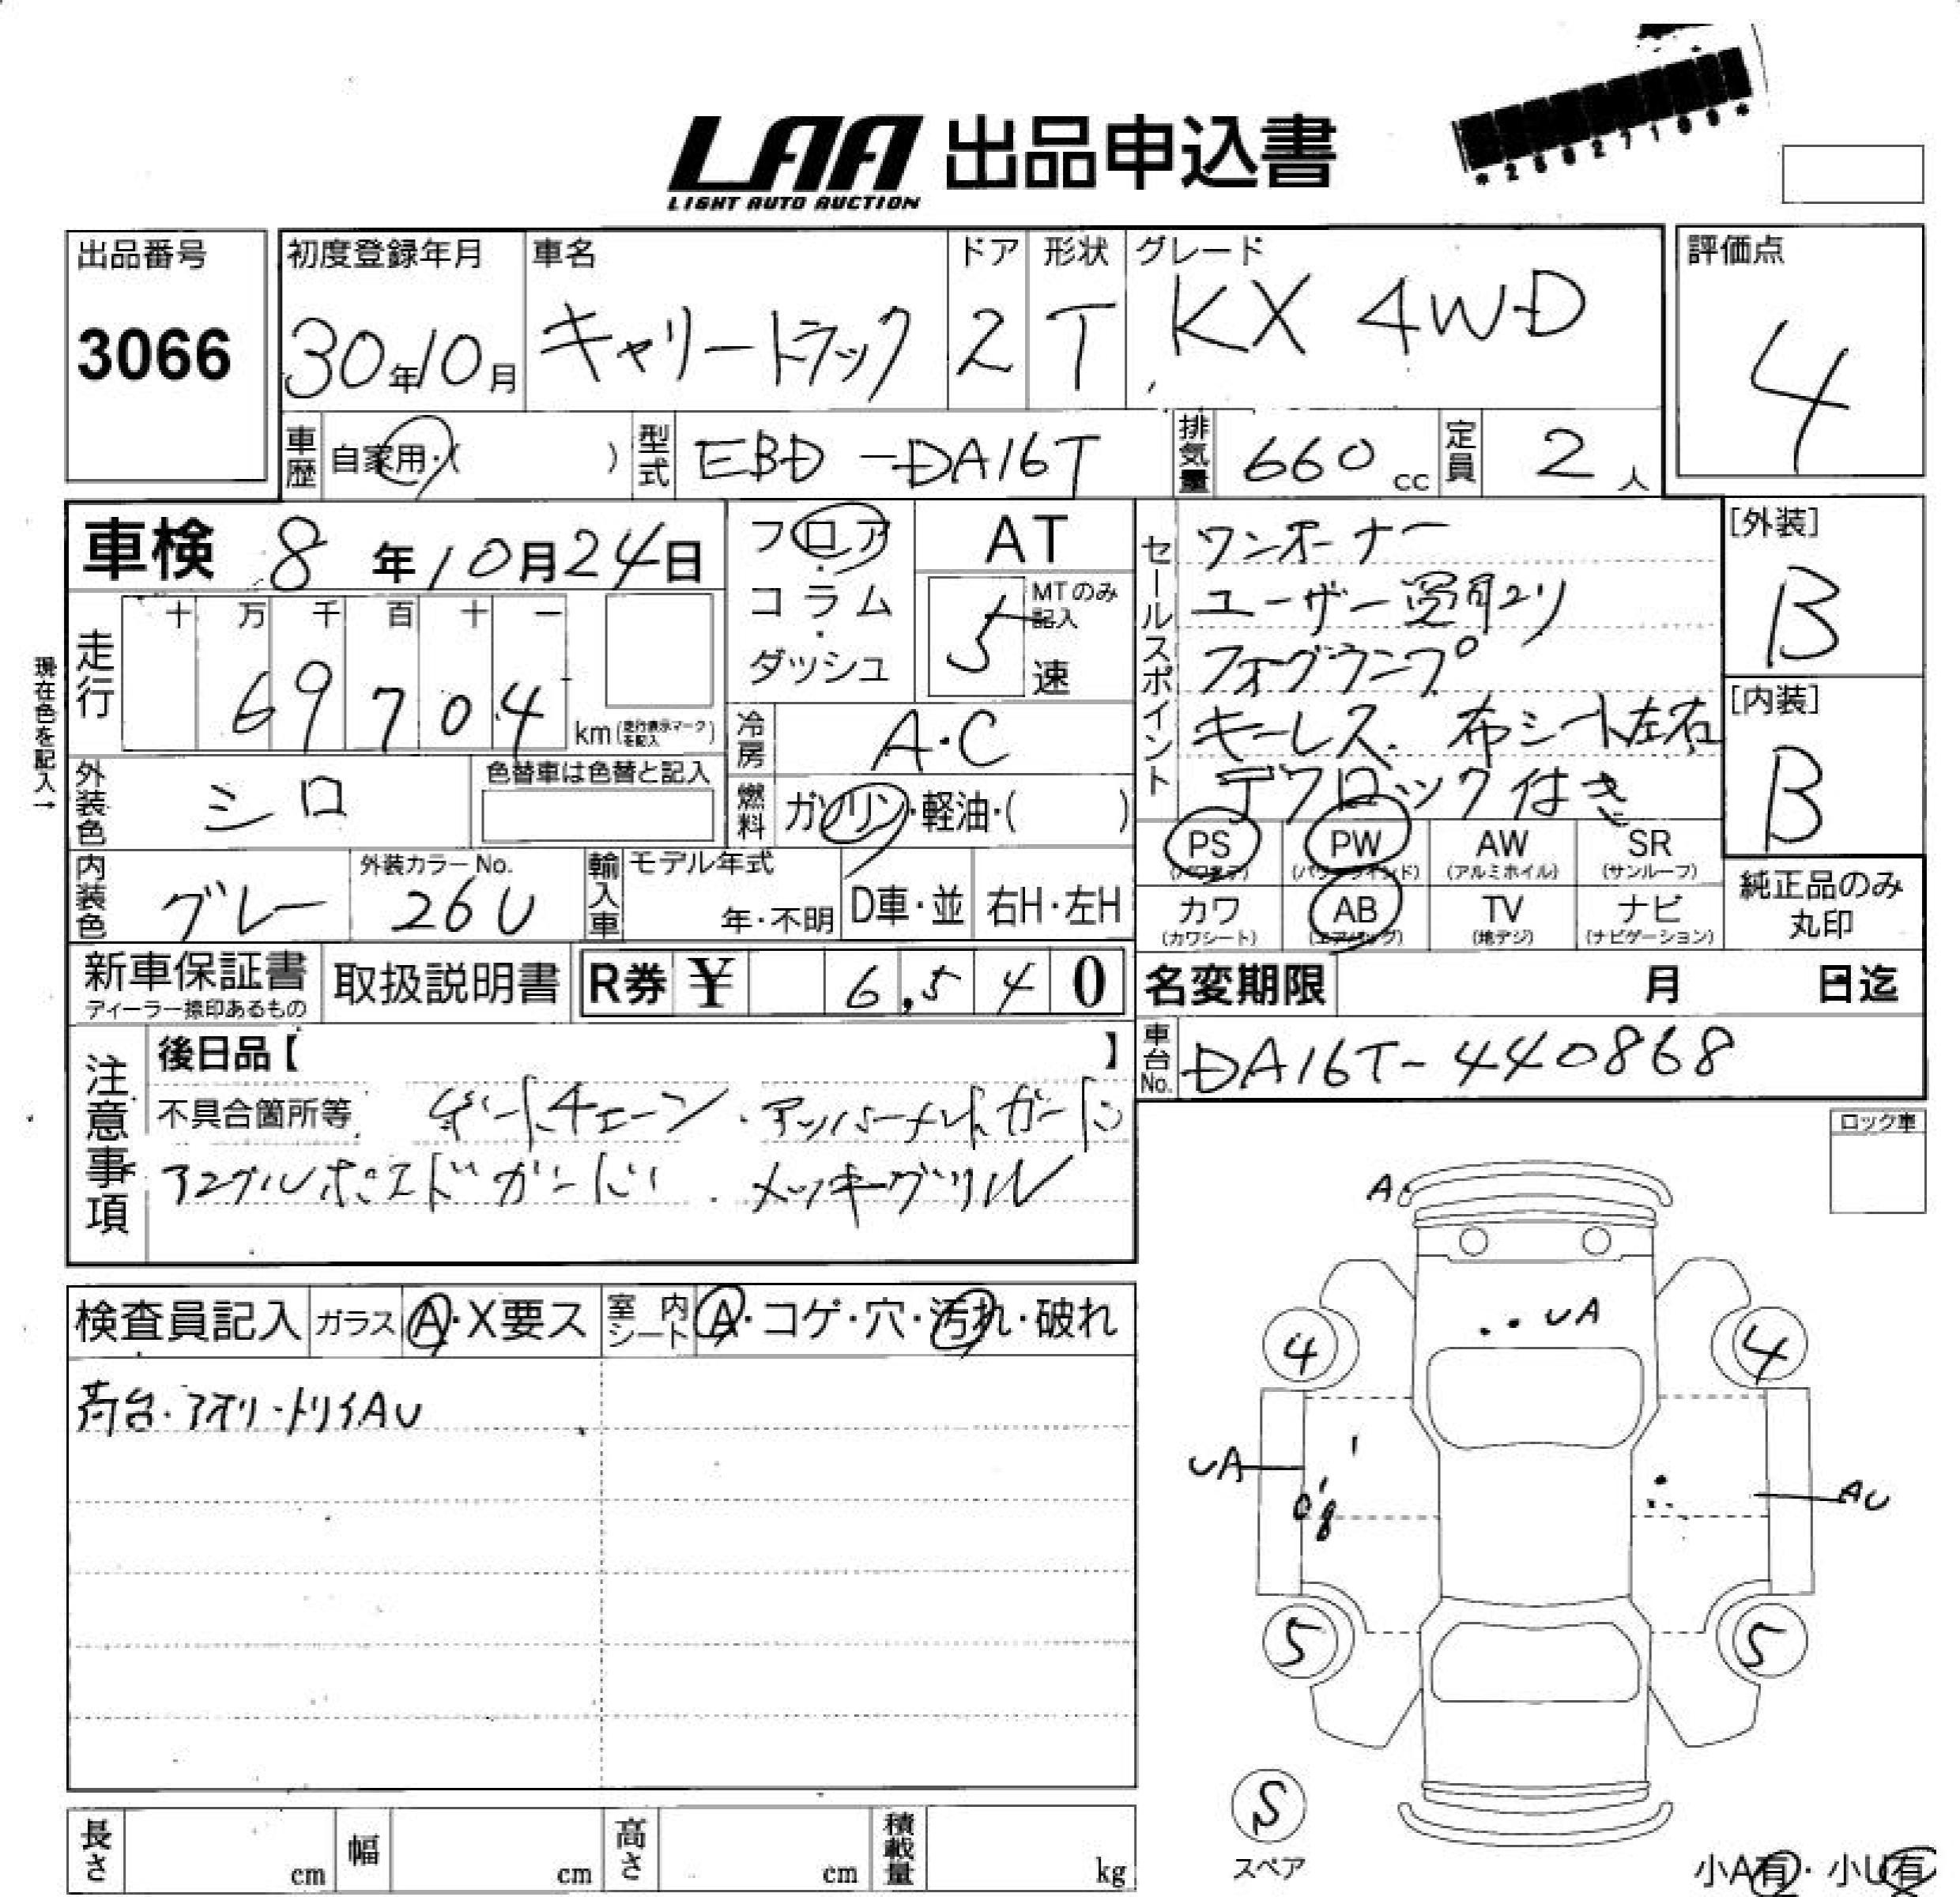 LAA 出品申込書
LIGHT AUTO AUCTION
*25827199*
出品番号 初度登録年月 車名 ドア 形状 グレード 評価点
3066 30年10月 キャリートラック 2 T KX 4WD 4
車歴 自家用・( ) 型式 EBD-DA16T 排気量 660 cc 定員 2 人
車検 8年10月24日
フロア・コラム・ダッシュ
AT
5 MTのみ記入 速
現在色を記入→
走行 十 万 千 百 十 一
69704 km(走行表示マークを記入)
冷房 A・C
外装色 シロ 色替車は色替と記入
燃料 ガソリン・軽油・( )
内装色 グレー 外装カラーNo. 26U
輸入車 モデル年式 年・不明 D車・並 右H・左H
セールスポイント
ワンオーナー
ユーザー買取り
フォグランプ
キーレス. 布シート左右
デフロック付き
[外装] B
[内装] B
PS (パワステ) PW (パワーウインド) AW (アルミホイル) SR (サンルーフ)
カワ (カワシート) AB (エアバック) TV (地デジ) ナビ (ナビゲーション)
純正品のみ丸印
新車保証書 ディーラー捺印あるもの 取扱説明書 R券 ¥ 6,540
名変期限 月 日迄
車台No. DA16T-440868
注意事項
後日品【 】
不具合箇所等 ゲートチェーン・アッパーメンバーガード
アングルポストガード . メッキグリル
ロック車
検査員記入 ガラス A・X要ス 室内シート A・コゲ・穴・汚れ・破れ
荷台・アオリ・トリイAU
A
UA
4 4
UA
AU
5 5
S
スペア
長さ cm 幅 cm 高さ cm 積載量 kg
小A有・小U有